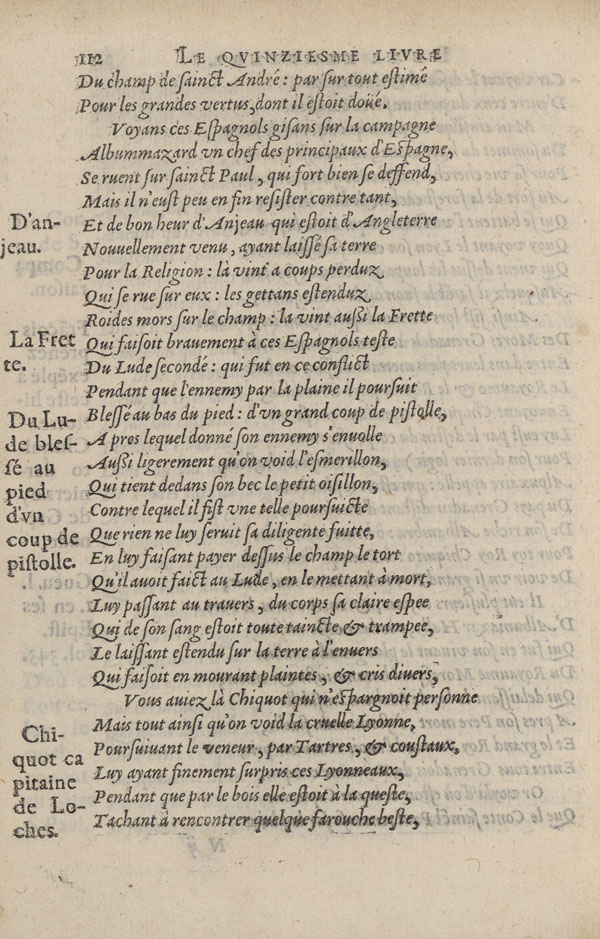 112 LE QVINZIESME LIVRE
Du champ de sainct André : par sur tout estimé
Pour les grandes vertus, dont il estoit doüé.
Voyans ces Espagnols gisans sur la campagne
Albummazard vn chef des principaux d'Espagne,
Se ruent sur sainct Paul, qui fort bien se deffend,
Mais il n'eust peu en fin resister contre tant,
D'an-
jeau.
Et de bon heur d'Anjeau qui estoit d'Angleterre
Nouuellement venu, ayant laissé sa terre
Pour la Religion : là vint a coups perduz
Qui se rue sur eux : les gettans estenduz
Roides mors sur le champ : la vint aussi la Frette
La Fret
te.
Qui faisoit brauement à ces Espagnols teste
Du Lude secondé : qui fut en ce conflict
Pendant que l'ennemy par la plaine il poursuit
Du Lu-
de bles-
sé au
pied
d'vn
coup de
pistolle.
Blessé au bas du pied : d'vn grand coup de pistolle,
A pres lequel donné son ennemy s'enuolle
Aussi ligerement qu'on void l'esmerillon,
Qui tient dedans son bec le petit oisillon,
Contre lequel il fist vne telle poursuicte
Que rien ne luy seruit sa diligente fuitte,
En luy faisant payer dessus le champ le tort
Qu'il auoit faict au Lude, en le mettant à mort,
Luy passant au trauers, du corps sa claire espee
Qui de son sang estoit toute taincte & trampee,
Le laissant estendu sur la terre à l'enuers
Qui faisoit en mourant plaintes, & cris diuers,
Vous auiez là Chiquot qui n'espargnoit personne
Chi-
quot ca
pitaine
de Lo-
ches.
Mais tout ainsi qu'on void la cruelle Lyonne,
Poursuiuant le veneur, par Tartres, & coustaux,
Luy ayant finement surpris ces Lyonneaux,
Pendant que par le bois elle estoit à la queste,
Tachant à rencontrer quelque farouche beste,